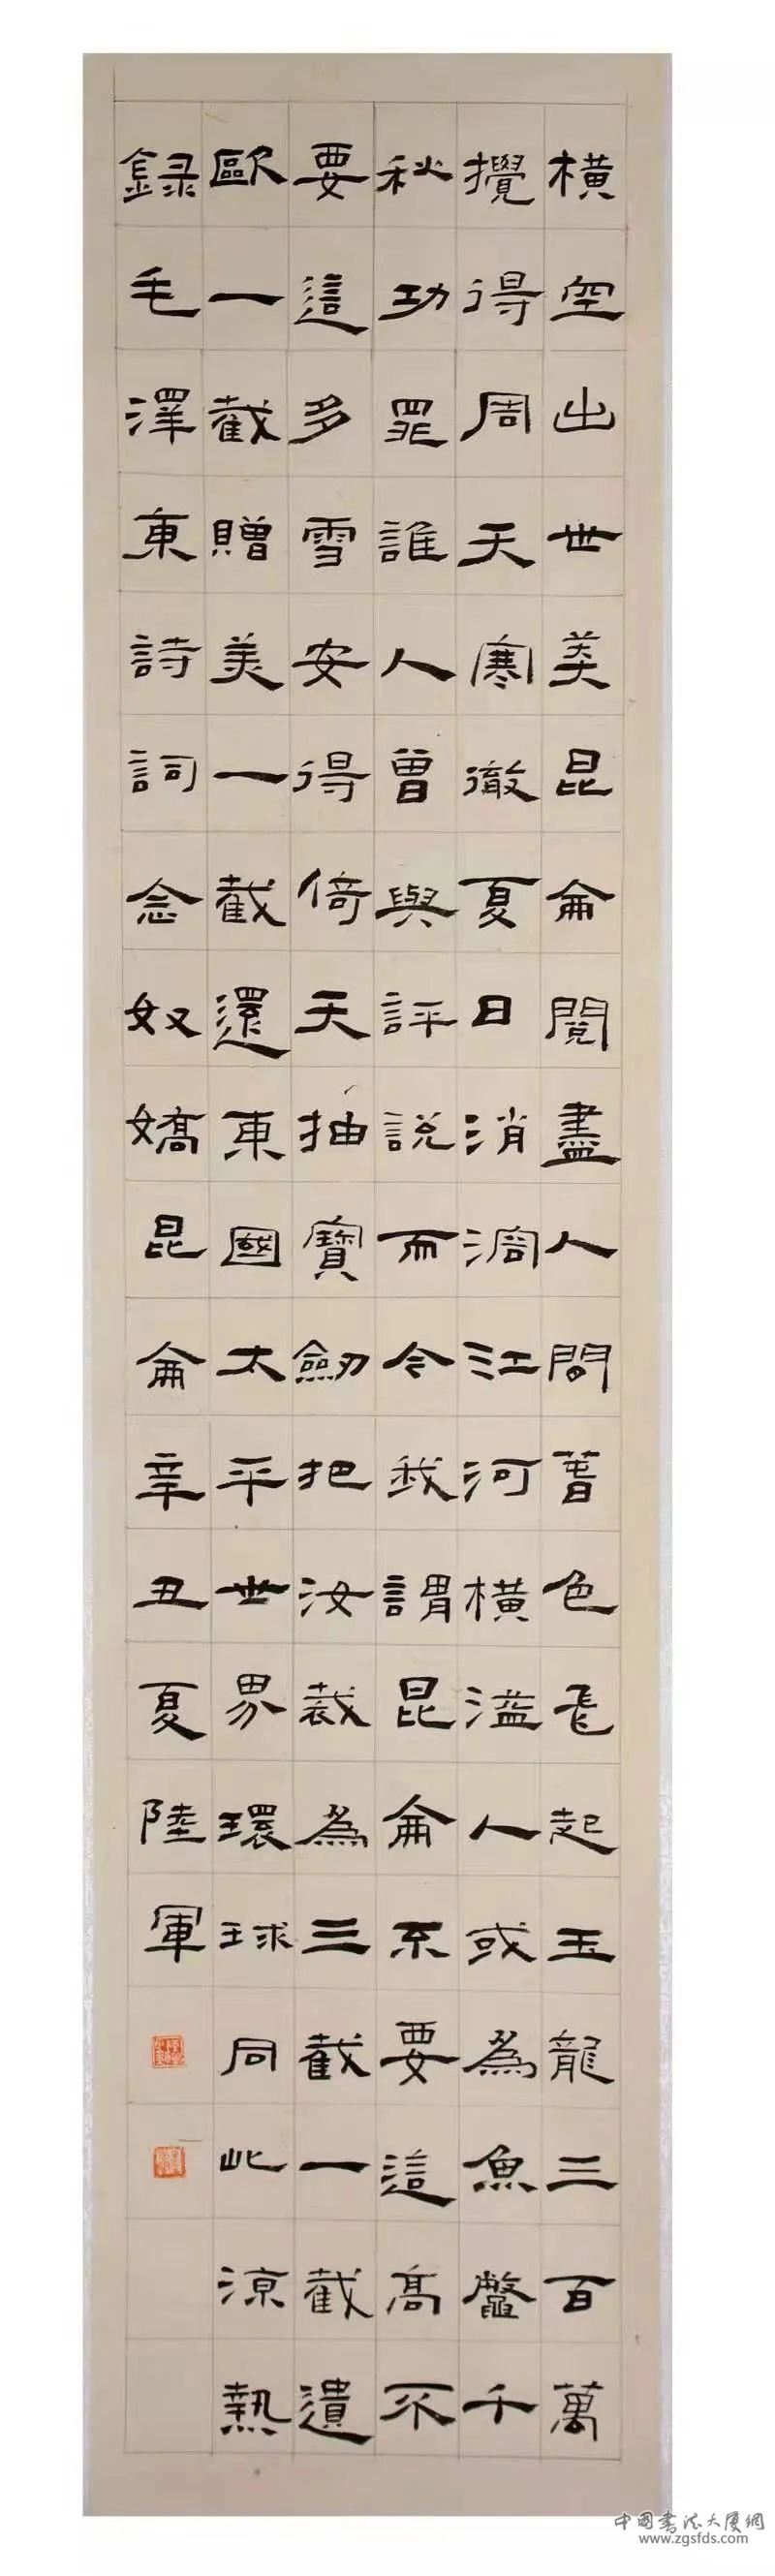 橫空出世莽昆侖閱盡人間萅色飛起玉龍三百萬
攪得周天寒徹夏日消溶江河橫溢人或為魚鱉千
秋功罪誰人曾與評說而今我謂昆侖不要這高不
要這多雪安得倚天抽寶劒把汝裁為三截一截遺
歐一截贈美一截還東國太平世界環球同此涼熱
錄毛澤東詩詞念奴嬌昆侖辛丑夏陸軍
中國書法大廈網
www.zgsfds.com